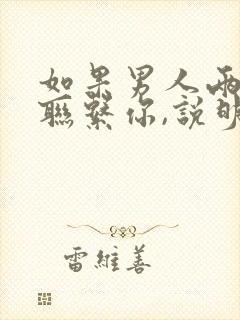 如果男人兩
聯繫你,說明
雷維善